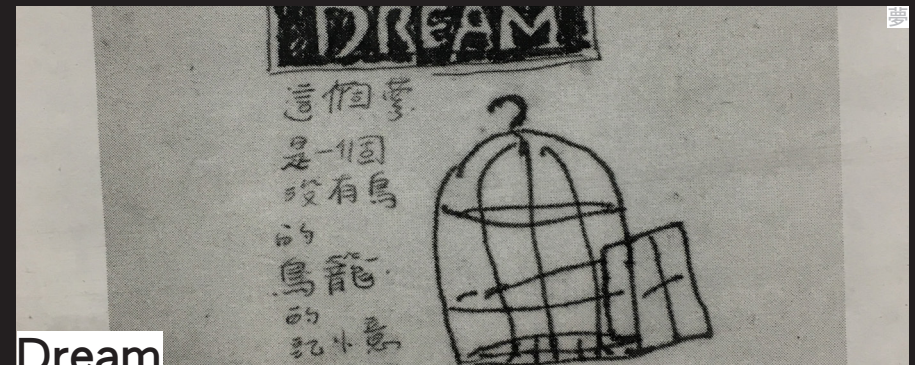 夢
DREAM
這個夢
是一個
沒有鳥
的
鳥籠
的
記憶
Dream